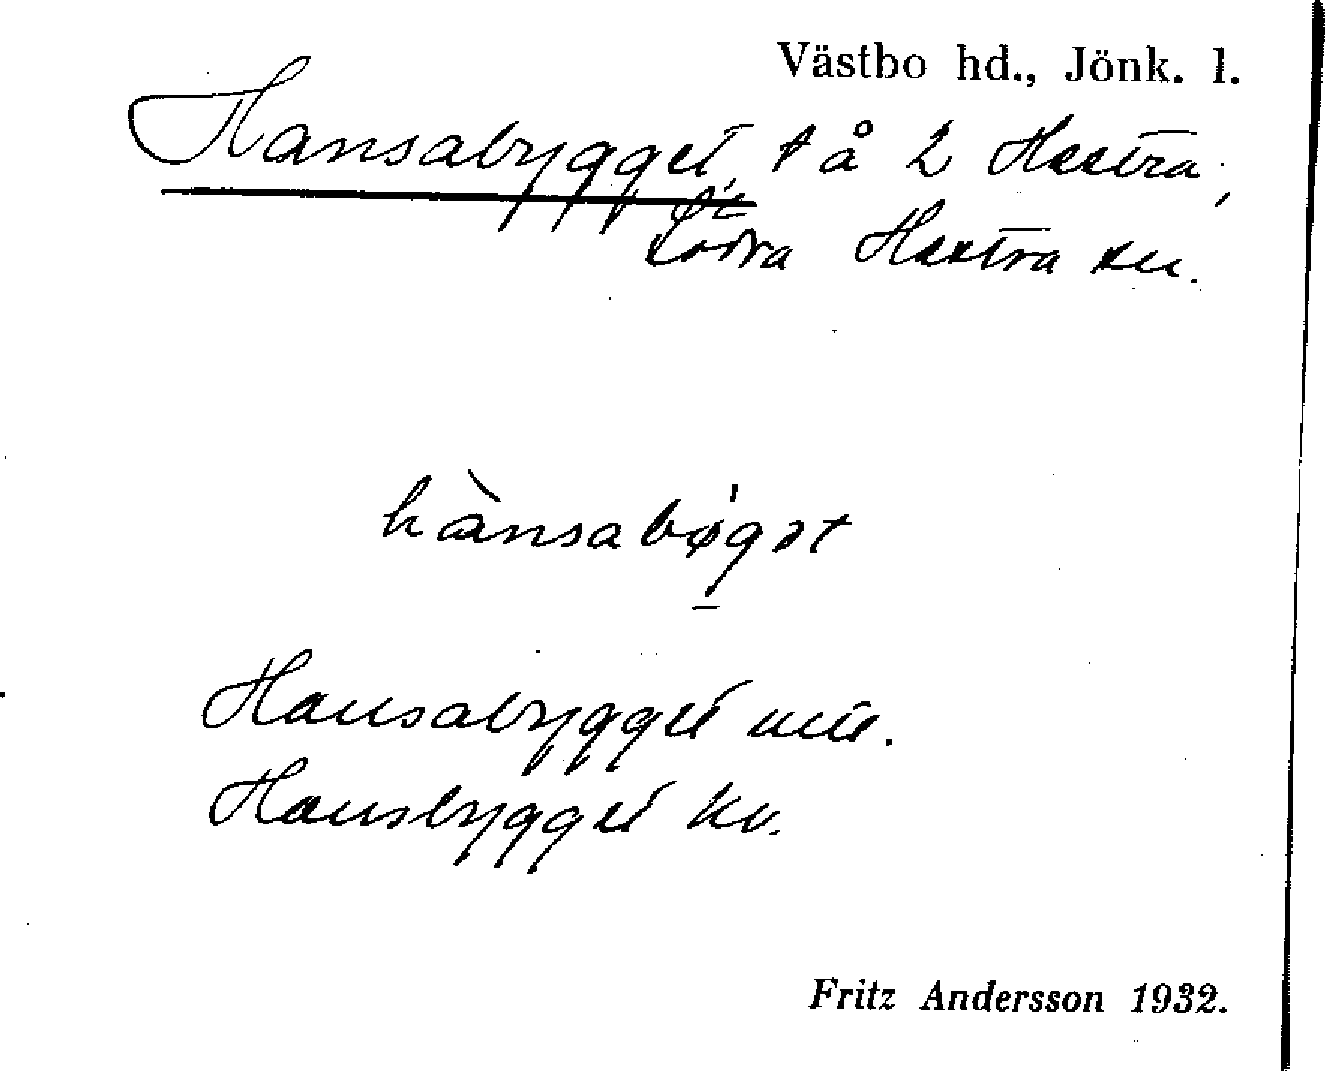 Västbo hd., Jönk. l.
Hansabygget, t å 2 Hestra,
Södra Hestra sn.
hànsabø̀gət
Hansabygget mtl.
Hansbygget kv.
Fritz Andersson 1932.